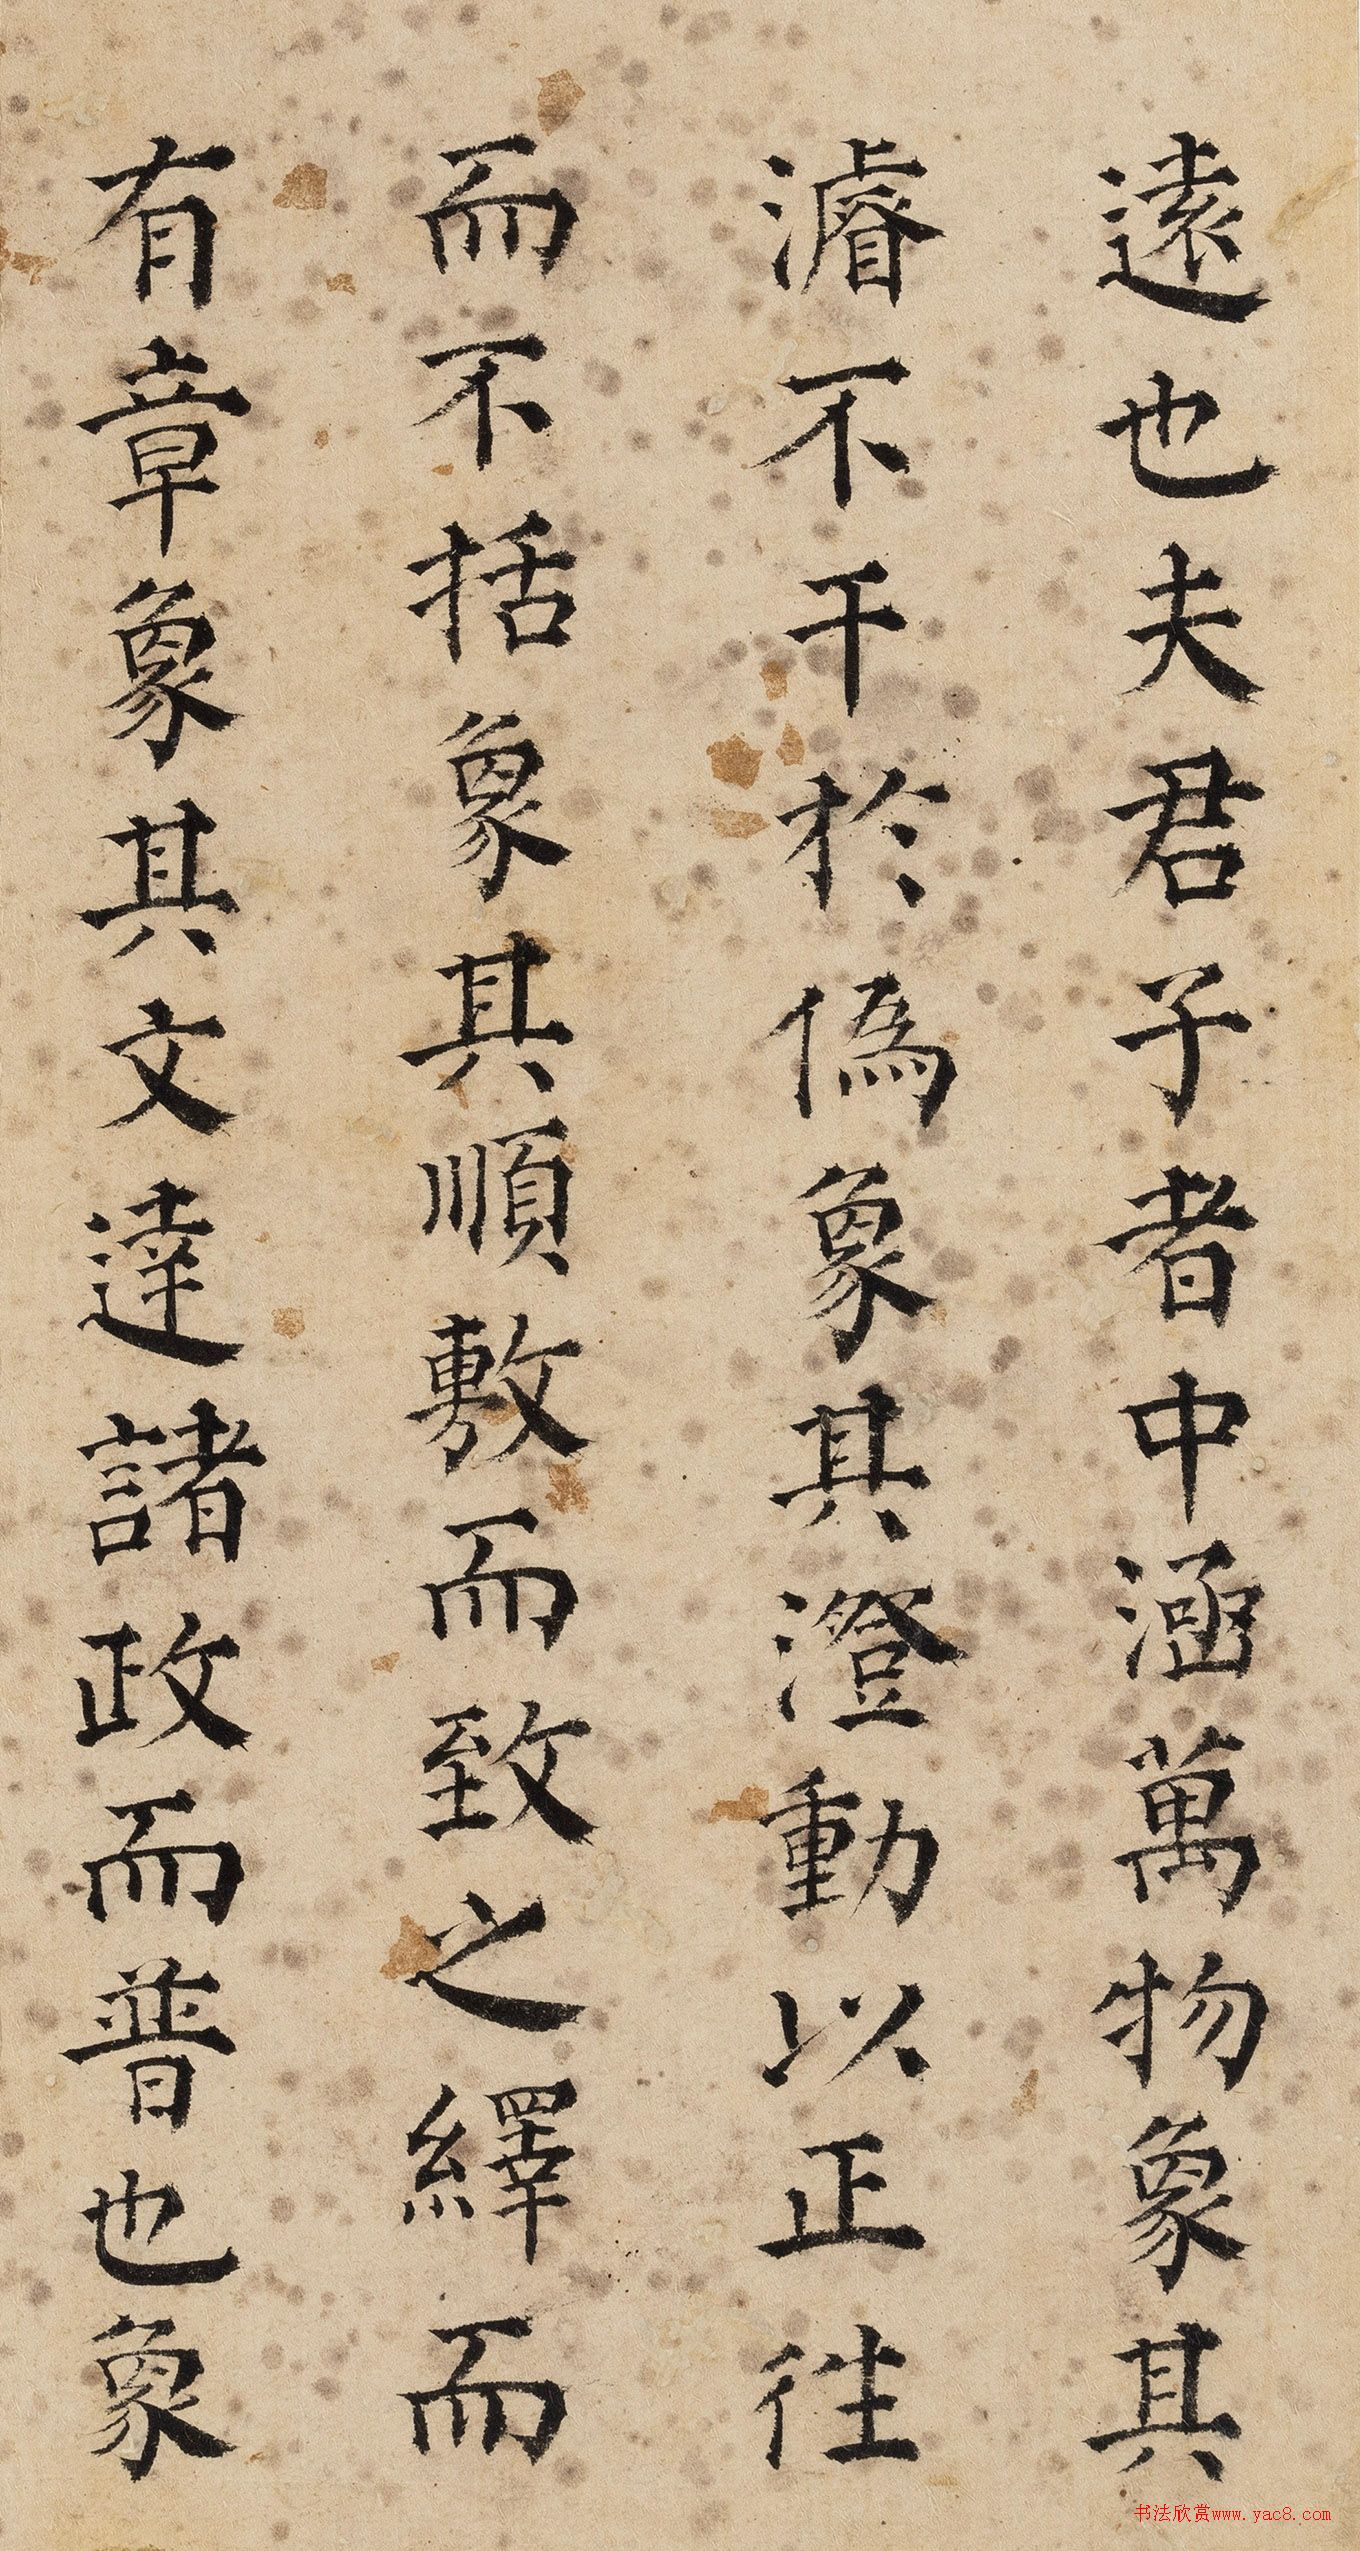 遠也夫君子者中涵萬物象其
濬不干於偽象其澄動以正往
而不括象其順敷而致之繹而
有章象其文達諸政而普也象
书法欣赏www.yac8.com